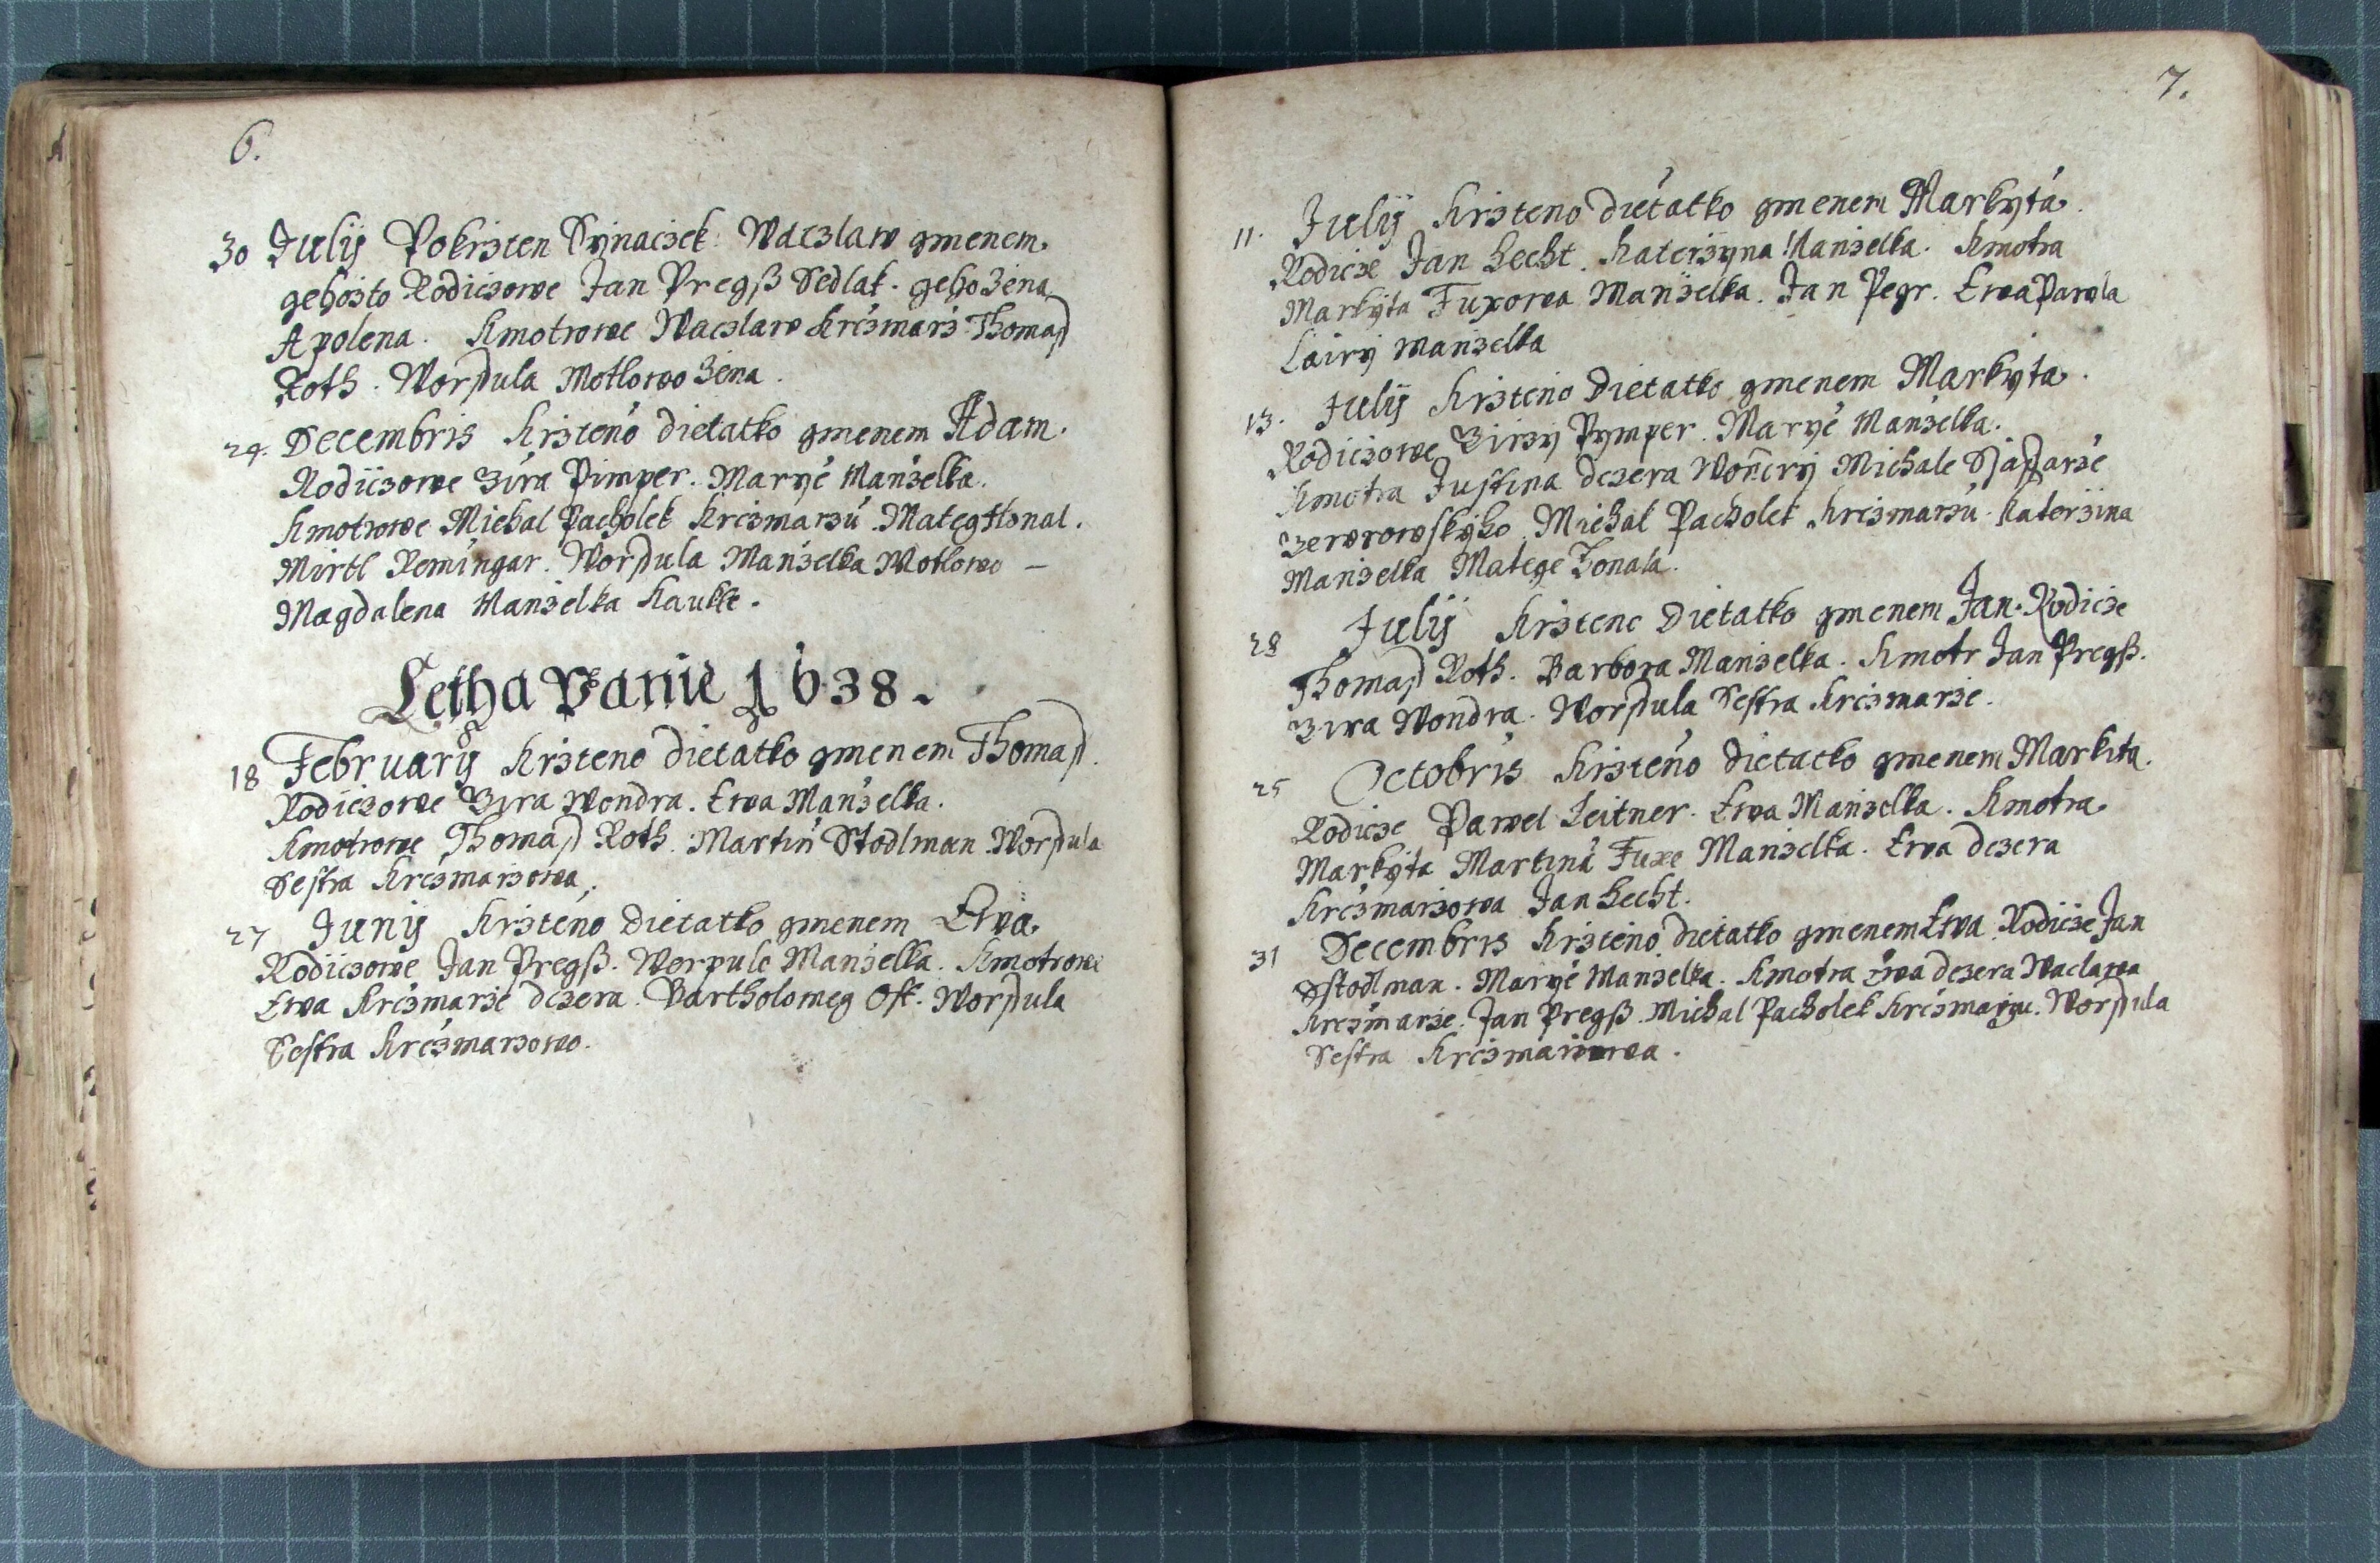 6.
30 Julij Pokrzten Synaczek Waczlaw gmenem.
gehožto Rodiczowe Jan Pregß Sedlak. geho žena
Apolena. Kmotrowe Waczlaw Krčzmarž Thomaß
Roth. Worßula Motlowo žena.
29. Decembris Krzteno dietatko gmenem Adam.
Rodiczowe Jira Pimper. Marye Manželka.
Kmotrowe Michal Pacholek Krczmaržu. Mateg Honal.
Mirtl Remingar. Worßula Manželka Motlowo –
Magdalena Manželka Kaukle.
Letha Panie 1638.
18 February Krzteno dietatko gmenem Thomaß.
Rodiczowe Jira Wondra. Ewa Manželka.
Kmotrowe Thomaß Roth. Martin Stodlman Worßula
Sestra Krczmarzowa.
27 Junij Krzteno dietatko gmenem Ewa.
Rodiczowe Jan Pregß. Worßule Manželka. Kmotrowe
Ewa Krczmarze dczera. Bartholomeg Ost. Worßula
Sestra Krczmarzowo.
7.
11. Julij Krzteno dietatko gmenem Markyta.
Rodicze Jan Hecht. Katerzyna Manželka. Kmotra
Markyta Fuxowa Manželka. Jan Pegr. Ewa Pawla
manželka
13. Julij Krzteno Dietatko gmenem Markyta.
Rodiczowe Jirzy Pymper. Marye Manželka.
Kmotra Justina dczera Michale
Michal Pacholek Krczmarzu. Katerzina
Manželka Matege Honala.
28 Julij Krzteno Dietatko gmenem Jan. Rodicze
Thomaß Roth. Barbora Manželka. Kmotr Jan Pregß.
Jira Wondra. Worßula Sestra Krczmarze.
25 Octobris Krzteno dietatko gmenem Markita.
Rodicze Pawel Leitner. Ewa Manželka. Kmotra
Markyta Martina Fuxe Manželka. Ewa dczera
Krczmarzowa Jan Hecht.
31 Decembris Krzteno dietatko gmenem Ewa Rodicze Jan
Sstodlman. Marye Manželka. Kmotra Ewa dczera Waclawa
Krczmarze. Jan Pregß. Michal Pacholek Krczmarzu. Worßula
Sestra Krczmarzowa.